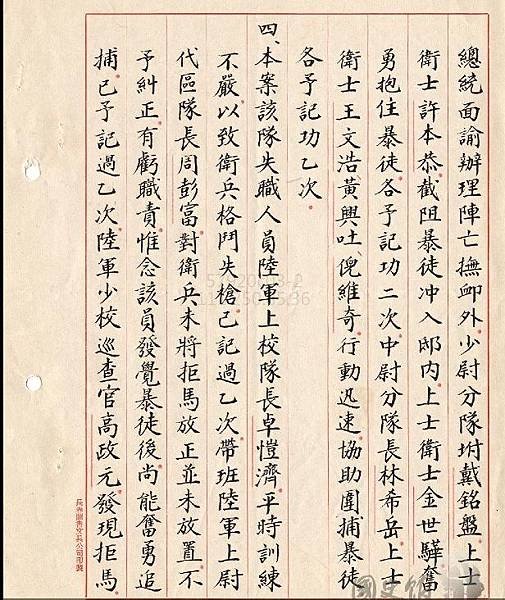 總統面諭辦理陣亡撫卹外少尉分隊坿戴銘盤上士
衛士許本恭截阻暴徒冲入邸內上士衛士金世驊奮
勇抱住暴徒各予記功二次中尉分隊長林希岳上士
衛士王文浩黃興吐倪維奇行動迅速協助圍捕暴徒
各予記功乙次
四、本案該隊失職人員陸軍上校隊長卓愷濟平時訓練
不嚴以致衛兵格鬥失槍已記過乙次帶班陸軍上尉
代區隊長周彭富對衛兵未將拒馬放正並未放置不
予糾正有虧職責惟念該員發覺暴徒後尚能奮勇追
捕已予記過乙次陸軍少校巡查官高政元發現拒馬
國史館